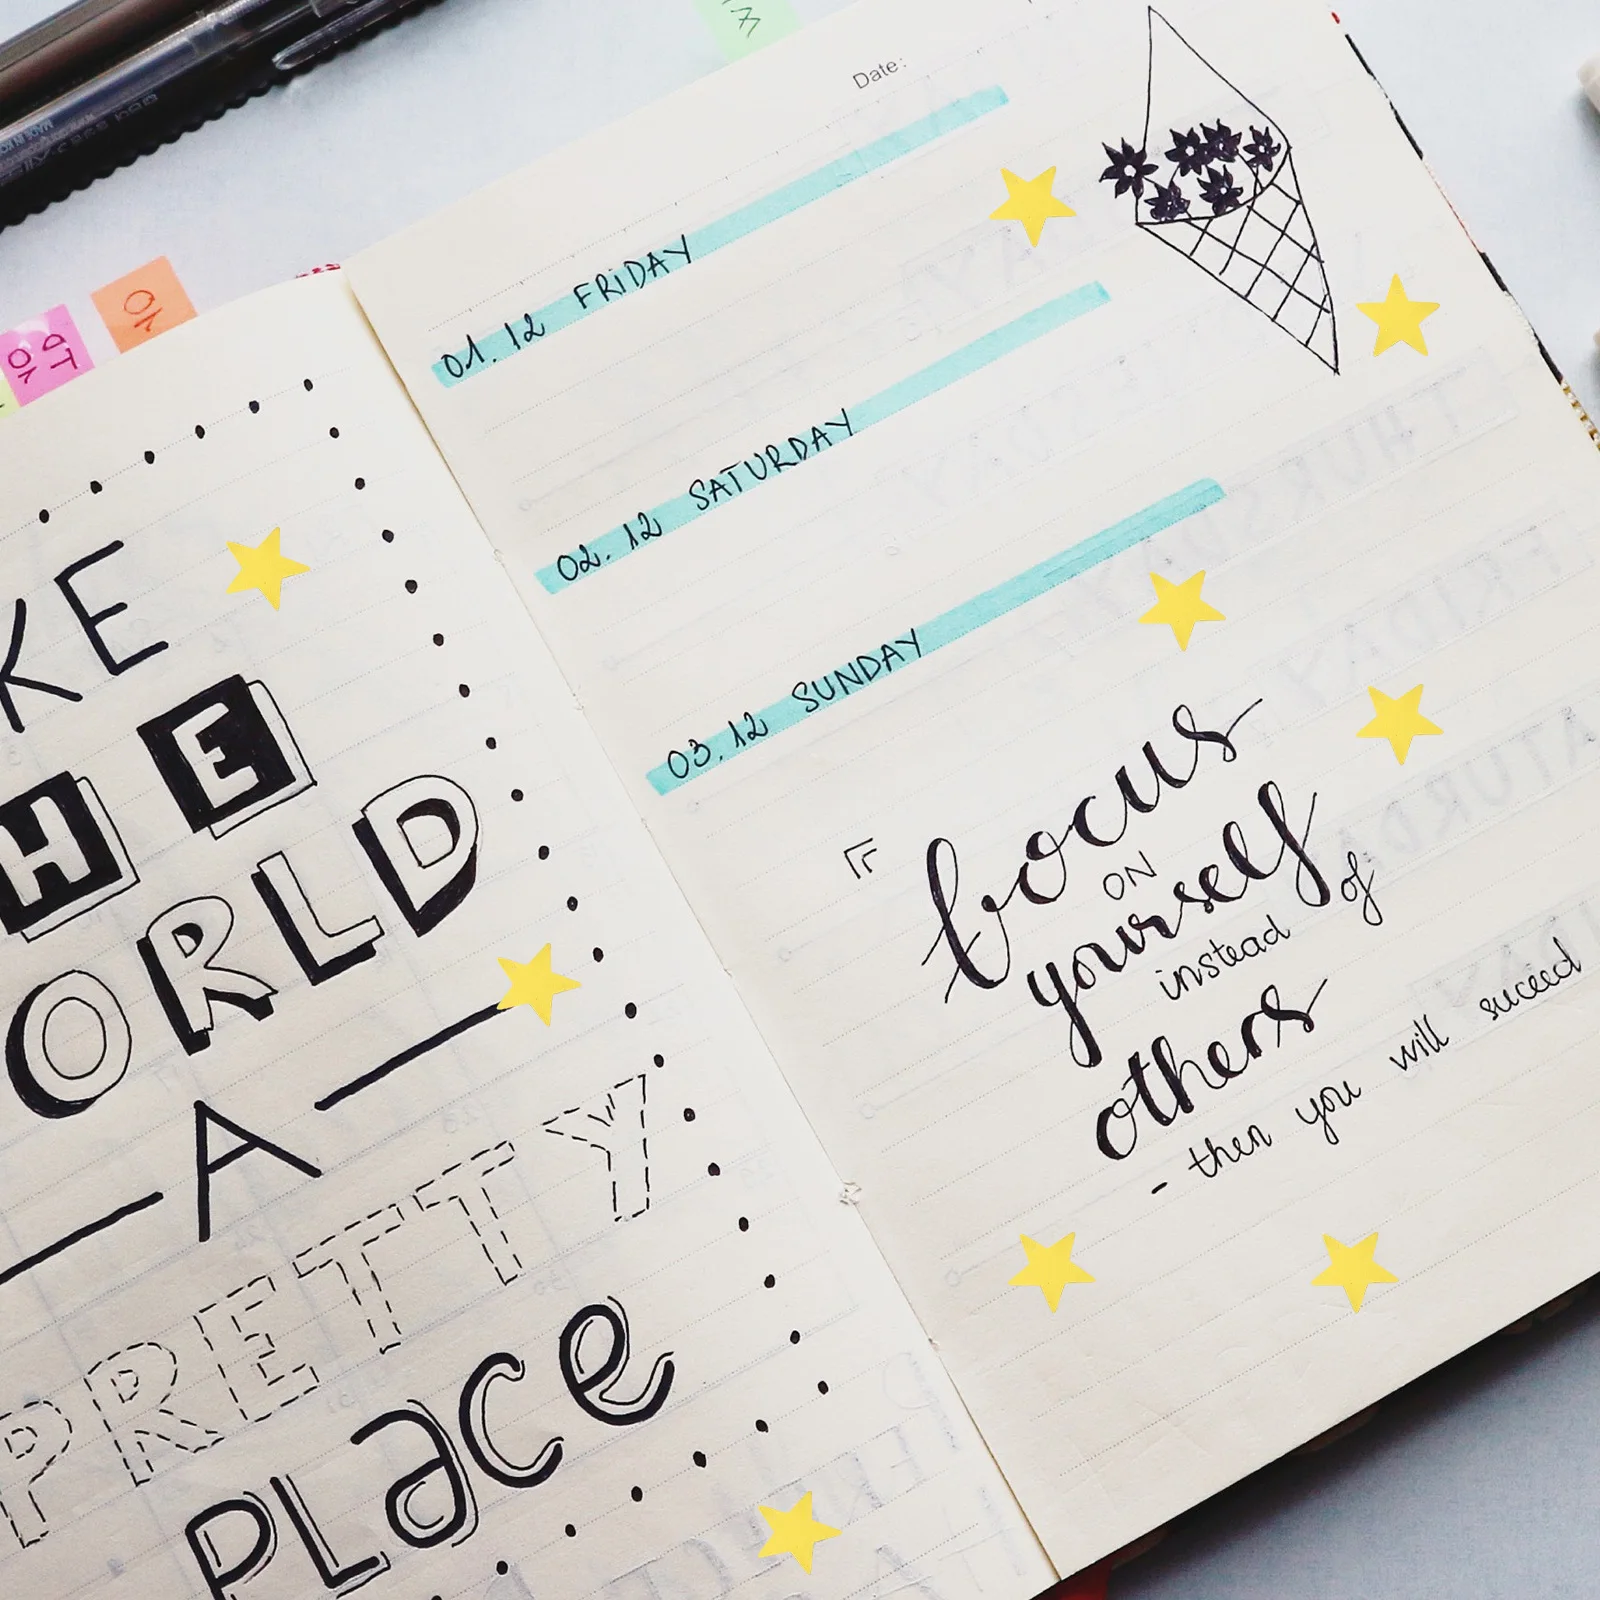 KE
HE
ORLD
— A —
PRETTY
PLace
Date:
01.12 FRIDAY
02.12 SATURDAY
03.12 SUNDAY
focus
ON
yourself
instead of
others
- then you will suceed